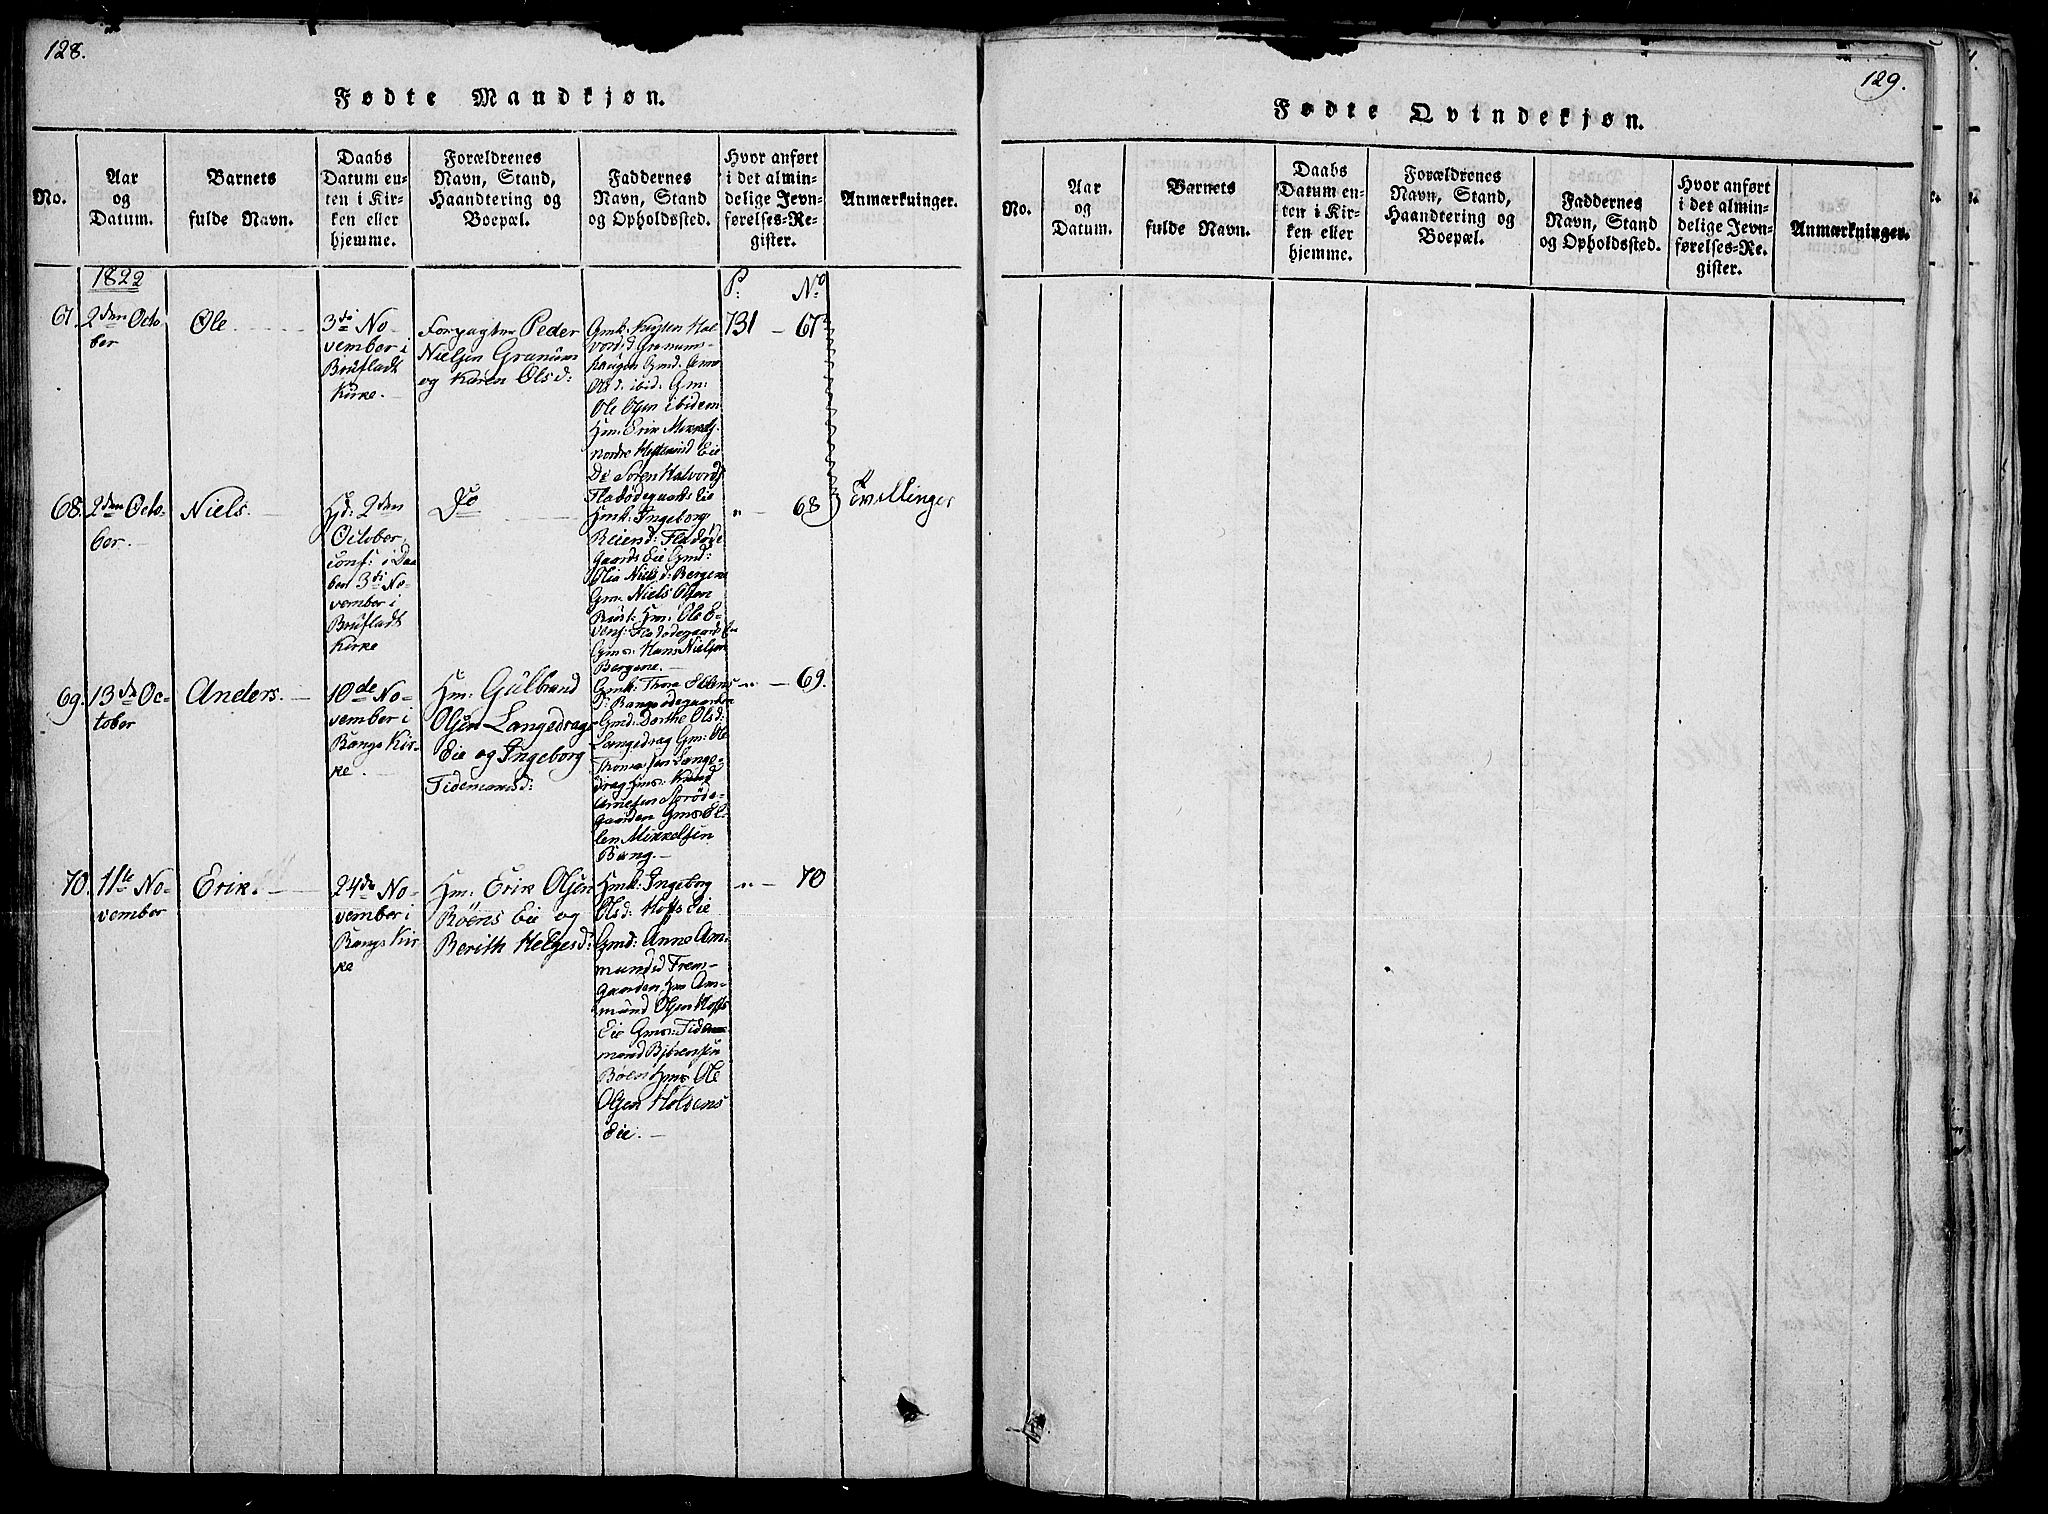 128.
Fødte Mandkjøn.
No.
Aar
og
Datum.
Barnets
fulde Navn.
Daabs
Datum en-
ten i Kir-
ken eller
hjemme.
Forældrenes
Navn, Stand,
Haandtering og
Boepæl.
Faddernes
Navn, Stand
og Opholdssted.
Hvor anført
i det almin-
delige Jevn-
førelses-Re-
gister.
Anmærkninger.
1822
P: No
67. 2den Octo-
ber
Ole
3die No-
vember i
Brufladt
Kirke.
Forpagter Peder
Nielsen Granum
og Karen Olsd:
Gmk: Kirsten Hal
vorsd Granums-
haugen Gmd: Anne
Olsd: ibid: Gm:
Ole Olsen ibidem
Hm: Erik Mikkels.
nordre Eie
De Soren Halvords
Fladødegaards Eie
731 - 67
68. 2den Octo-
ber.
Niels.
Hd: 2den
October
conf: i Daa
ben 3die No-
vember i
Brufladt
Kirke
Do
Hmk: Ingeborg
Reiersd: Fladøde
gaards Eie Gmd:
Olia Nielsd: Bergene
Gm: Niels Olsen
Rust: Hm: Ole E-
vens: Fladødegaards Eie
Gms: Hans Nielsen
Bergene.
" - 68
Tvillinger
69. 13de Oc-
tober
Anders.
10de No-
vember i
Bangs Kir-
ke.
Hm: Gulbrand
Olsen Langedrags
Eie og Ingeborg
Tidemansd:
Gmk: Thora Ellens
D: Bangsødegaarden
Gmd: Dorthe Olsd:
Langedrag Gm: Ole
Thomassen Lange-
drag Hms: Knud
Arnesen
gaarden Gms El-
len Mikkelsen
Bang.
" - 69.
70. 11te No-
vember
Erik.
24de No-
vember i
Bangs Kir
ke
Hm: Erik Olsen
Røens Eie og
Berith Helgesd:
Hmk: Ingeborg
Olsd: Hoffs Eie
Gmd: Anne Am-
mundsd Frem-
gaarden, Hm Am-
mund Olsen Hoffs
Eie Gms: Tide-
mand Bjørensen
Bøen Hms Ole
Olsen Holdens
Eie.
" - 70
129.
Fødte Qvindekjøn.
No.
Aar
og
Datum.
Barnets
fulde Navn.
Daabs
Datum en-
ten i Kir-
ken eller
hjemme.
Forældrenes
Navn, Stand,
Haandtering og
Boepæl.
Faddernes
Navn, Stand
og Opholdssted.
Hvor anført
i det almin-
delige Jevn-
førelses-Re-
gister.
Anmærkninger.